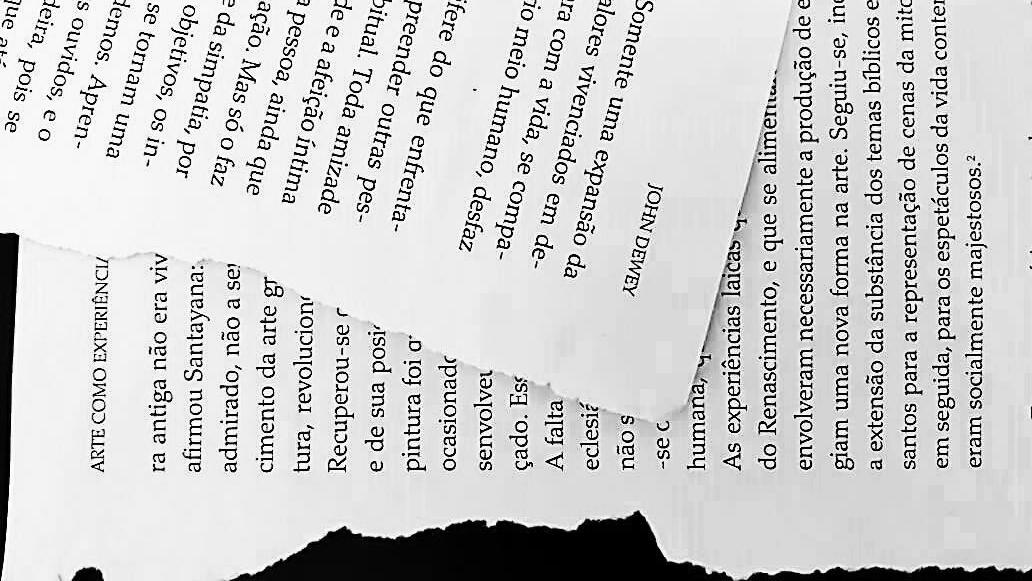 JOHN DEWEY
Somente uma expansão da
alores vivenciados em de-
ra com a vida, se compa-
io meio humano, desfaz
ifere do que enfrenta-
preender outras pes-
bitual. Toda amizade
de e a afeição íntima
a pessoa, ainda que
ação. Mas só o faz
e da simpatia, por
objetivos, os in-
se tornam uma
demos. Apren-
s ouvidos, e o
deira, pois se
que até
ARTE COMO EXPERIÊNCIA
ra antiga não era viv
afirmou Santayana:
admirado, não a se
cimento da arte gr
tura, revolucion
Recuperou-se
e de sua posi
pintura foi
ocasionad
senvolveu
çado. Ess
A falta
eclesiá
não s
-se
humana,
As experiências laicas q
do Renascimento, e que se alimen
envolveram necessariamente a produção de e
giam uma nova forma na arte. Seguiu-se, inc
a extensão da substância dos temas bíblicos e
santos para a representação de cenas da mito
em seguida, para os espetáculos da vida conten
eram socialmente majestosos.²